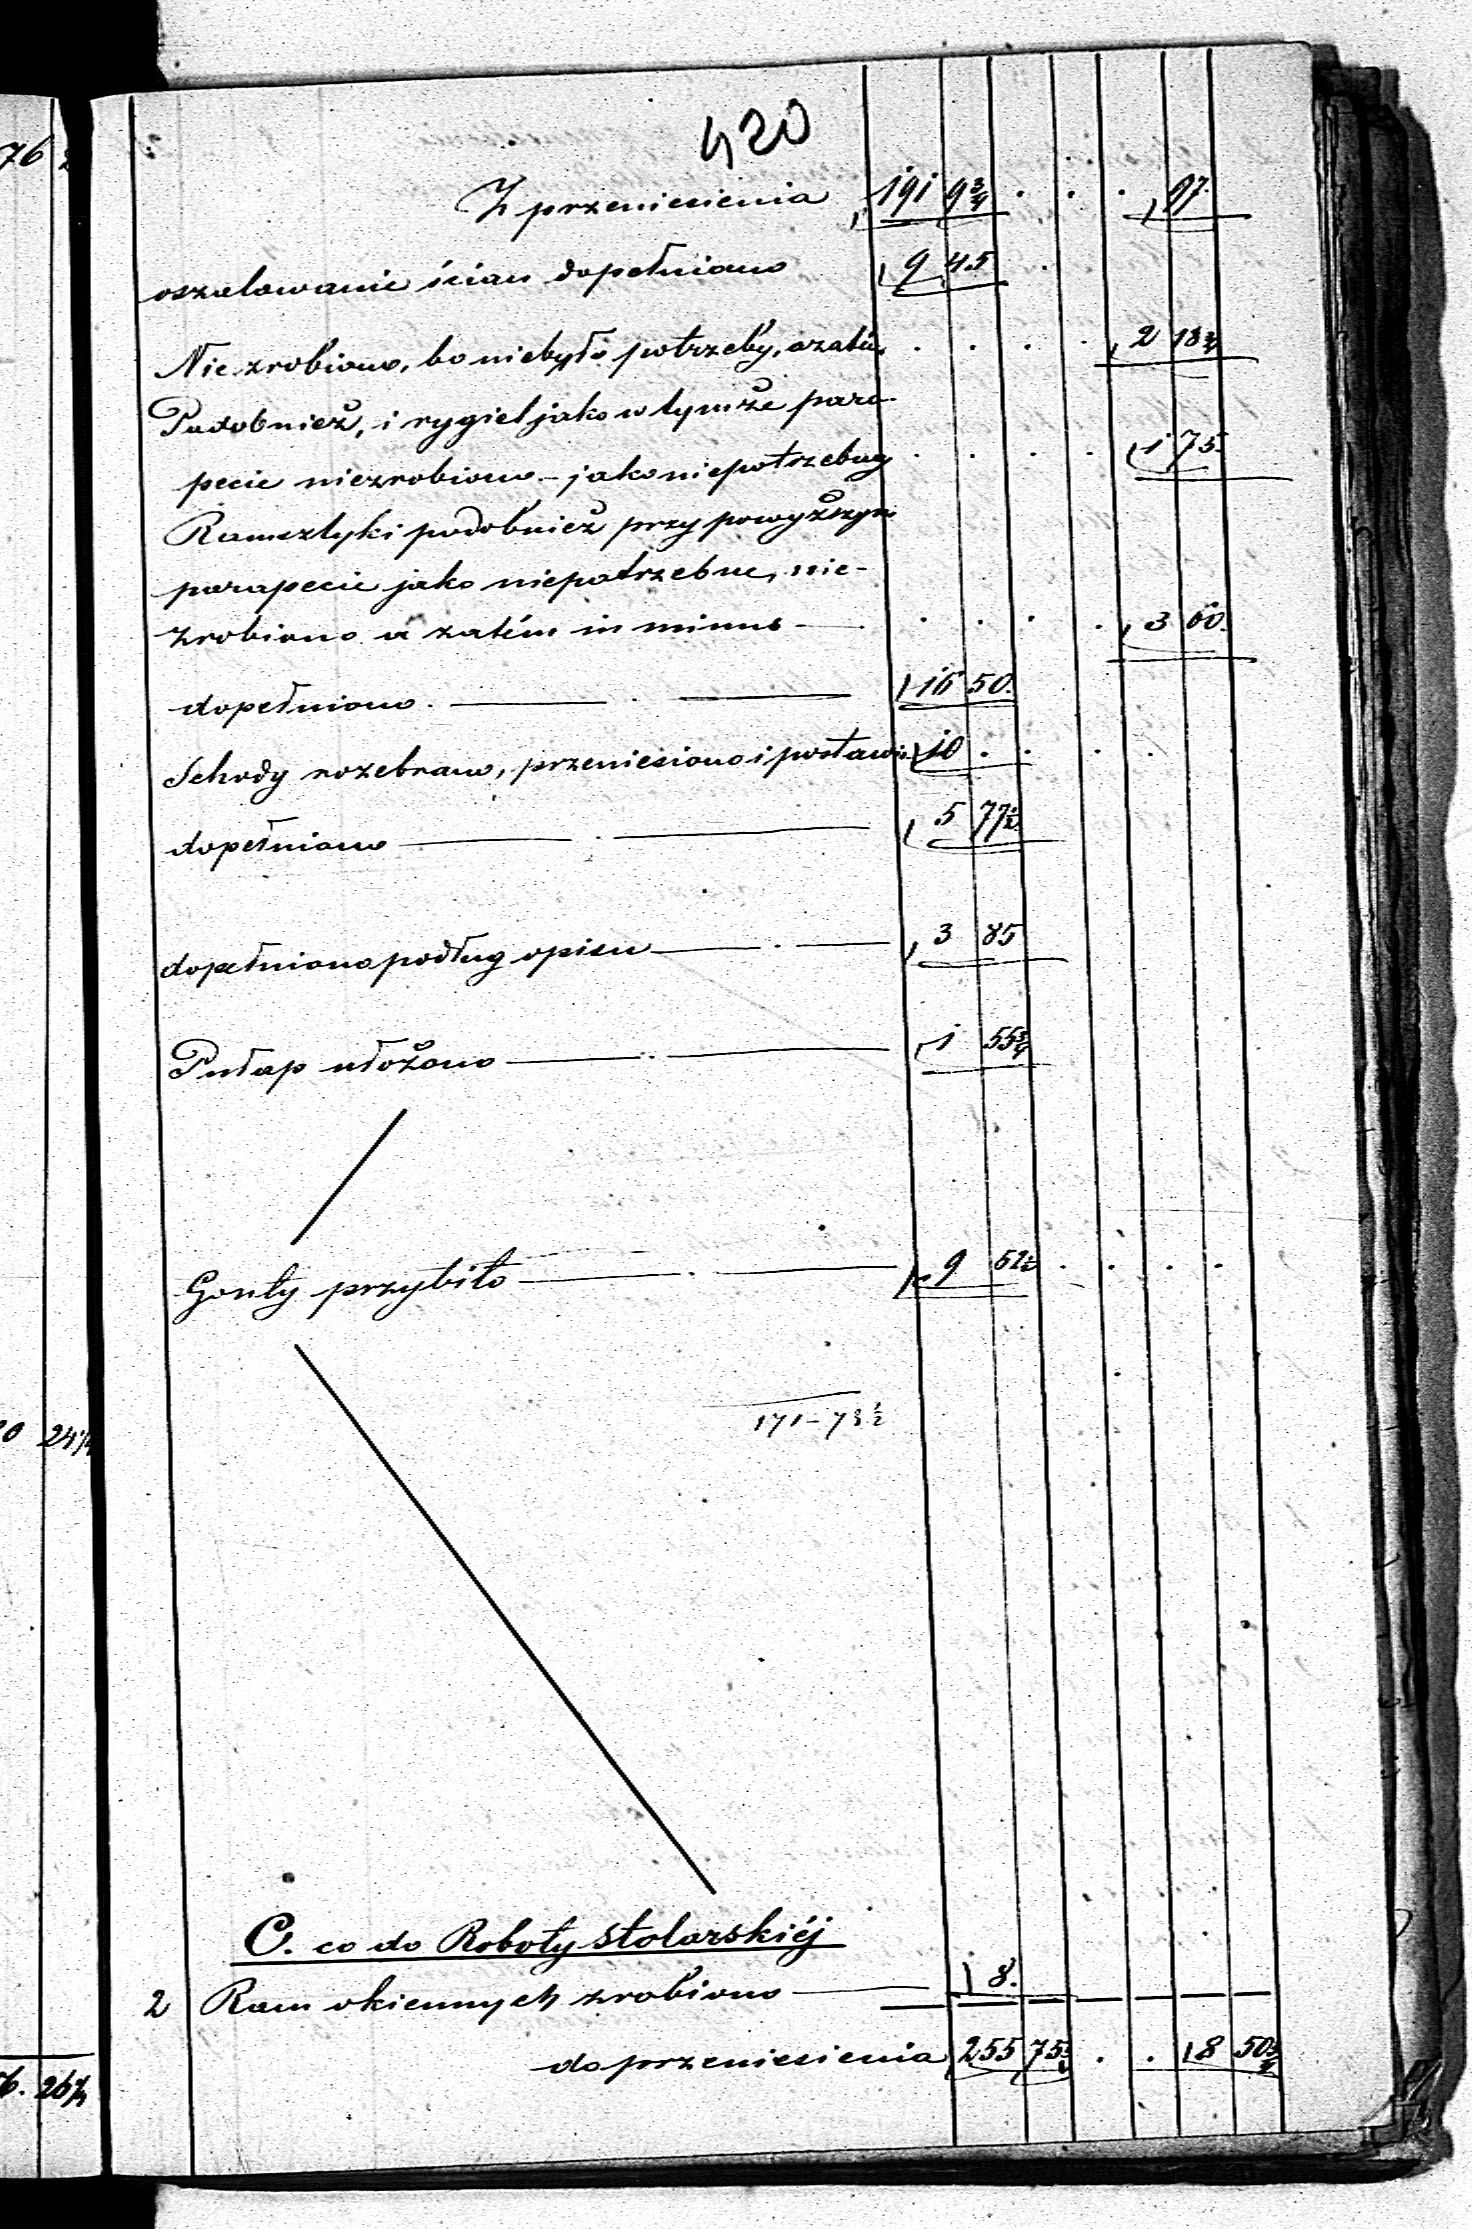 76
420
Z przeniesienia 191 9¾ . . . 97.
oszalowanie ścian dopełniono 9 45 .
Nie zrobiono, bo niebyło potrzeby, a zatém . . . . 2 18¾
Podobnież, i rygiel jako w tymże para-
pecie niezrobiono - jako niepotrzebny . . . . 1 75.
Ramsztyki podobnież przy powyższym
parapecie jako niepotrzebne, nie-
zrobiono a zatém in minus — . . . . 3 60.
dopełniono. — . — 16 50.
Schody rozebrano, przeniesiono i postawio 10 . . . . .
dopełniono — . — 5 77½
dopełniono podług opisu — . — 3 85
Pułap ułożono — .. — 1 55¾
Gonty przybito — . — 9 52½ . . . .
171-78½
0 24¼
C. co do Roboty stolarskiéj
2 Ram okiennych zrobiono — 8.
do przeniesienia 255 75 . . 8 50¾
6. 26¼